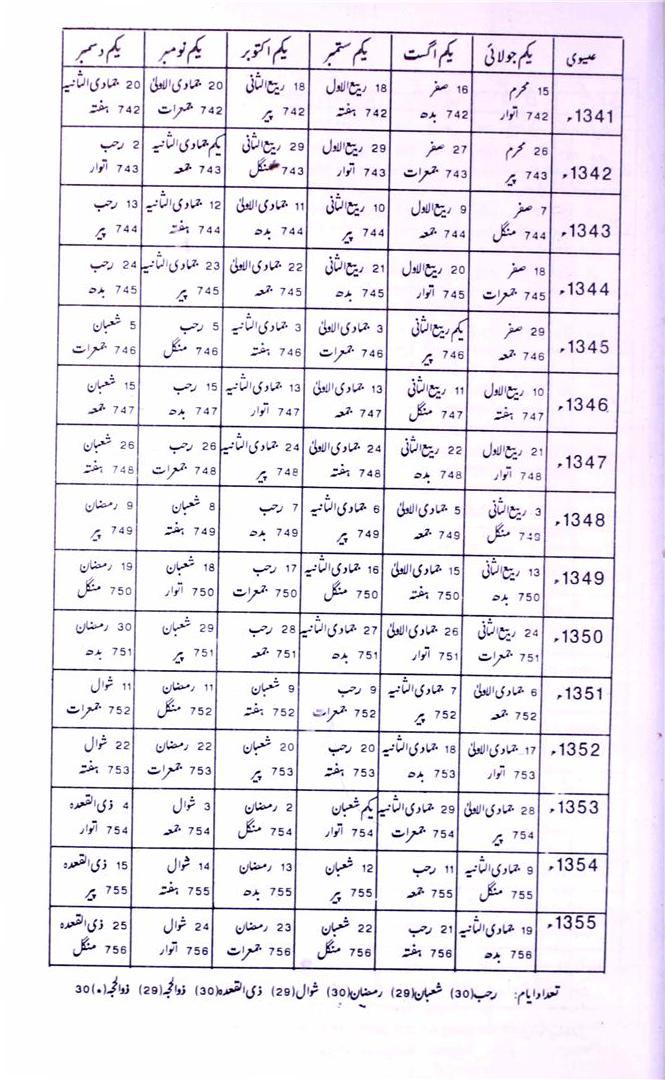 عیسوی یکم جولائی یکم اگست یکم ستمبر یکم اکتوبر یکم نومبر یکم دسمبر
1341ء 15 محرم 16 صفر 18 ربیع الاول 18 ربیع الثانی 20 جمادی الاولیٰ 20 جمادی الثانیہ
742 اتوار 742 بدھ 742 ہفتہ 742 پیر 742 جمعرات 742 ہفتہ
1342ء 26 محرم 27 صفر 29 ربیع الاول 29 ربیع الثانی یکم جمادی الثانیہ 2 رجب
743 پیر 743 جمعرات 743 اتوار 743 منگل 743 جمعہ 743 اتوار
1343ء 7 صفر 9 ربیع الاول 10 ربیع الثانی 11 جمادی الاولیٰ 12 جمادی الثانیہ 13 رجب
744 منگل 744 جمعہ 744 پیر 744 بدھ 744 ہفتہ 744 پیر
1344ء 18 صفر 20 ربیع الاول 21 ربیع الثانی 22 جمادی الاولیٰ 23 جمادی الثانیہ 24 رجب
745 جمعرات 745 اتوار 745 بدھ 745 جمعہ 745 پیر 745 بدھ
1345ء 29 صفر یکم ربیع الثانی 3 جمادی الاولیٰ 3 جمادی الثانیہ 5 رجب 5 شعبان
746 جمعہ 746 پیر 746 جمعرات 746 ہفتہ 746 منگل 746 جمعرات
1346ء 10 ربیع الاول 11 ربیع الثانی 13 جمادی الاولیٰ 13 جمادی الثانیہ 15 رجب 15 شعبان
747 ہفتہ 747 منگل 747 جمعہ 747 اتوار 747 بدھ 747 جمعہ
1347ء 21 ربیع الاول 22 ربیع الثانی 24 جمادی الاولیٰ 24 جمادی الثانیہ 26 رجب 26 شعبان
748 اتوار 748 بدھ 748 ہفتہ 748 پیر 748 جمعرات 748 ہفتہ
1348ء 3 ربیع الثانی 5 جمادی الاولیٰ 6 جمادی الثانیہ 7 رجب 8 شعبان 9 رمضان
749 منگل 749 جمعہ 749 پیر 749 بدھ 749 ہفتہ 749 پیر
1349ء 13 ربیع الثانی 15 جمادی الاولیٰ 16 جمادی الثانیہ 17 رجب 18 شعبان 19 رمضان
750 بدھ 750 ہفتہ 750 منگل 750 جمعرات 750 اتوار 750 منگل
1350ء 24 ربیع الثانی 26 جمادی الاولیٰ 27 جمادی الثانیہ 28 رجب 29 شعبان 30 رمضان
751 جمعرات 751 اتوار 751 بدھ 751 جمعہ 751 پیر 751 بدھ
1351ء 6 جمادی الاولیٰ 7 جمادی الثانیہ 9 رجب 9 شعبان 11 رمضان 11 شوال
752 جمعہ 752 پیر 752 جمعرات 752 ہفتہ 752 منگل 752 جمعرات
1352ء 17 جمادی الاولیٰ 18 جمادی الثانیہ 20 رجب 20 شعبان 22 رمضان 22 شوال
753 اتوار 753 بدھ 753 ہفتہ 753 پیر 753 جمعرات 753 ہفتہ
1353ء 28 جمادی الاولیٰ 29 جمادی الثانیہ یکم شعبان 2 رمضان 3 شوال 4 ذی القعدہ
754 پیر 754 جمعرات 754 اتوار 754 منگل 754 جمعہ 754 اتوار
1354ء 9 جمادی الثانیہ 11 رجب 12 شعبان 13 رمضان 14 شوال 15 ذی القعدہ
755 منگل 755 جمعہ 755 پیر 755 بدھ 755 ہفتہ 755 پیر
1355ء 19 جمادی الثانیہ 21 رجب 22 شعبان 23 رمضان 24 شوال 25 ذی القعدہ
756 بدھ 756 ہفتہ 756 منگل 756 جمعرات 756 اتوار 756 منگل
تعداد ایام: رجب(30) شعبان(29) رمضان(30) شوال(29) ذی القعدہ(30) ذوالحجہ(29) ذوالحجہ(*)30